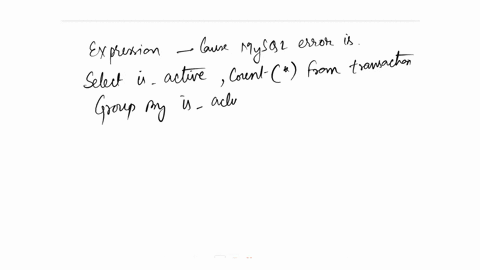 Expression — Cause MySQL error is.
Select is_active, Count(*) from transaction
Group by is_activ